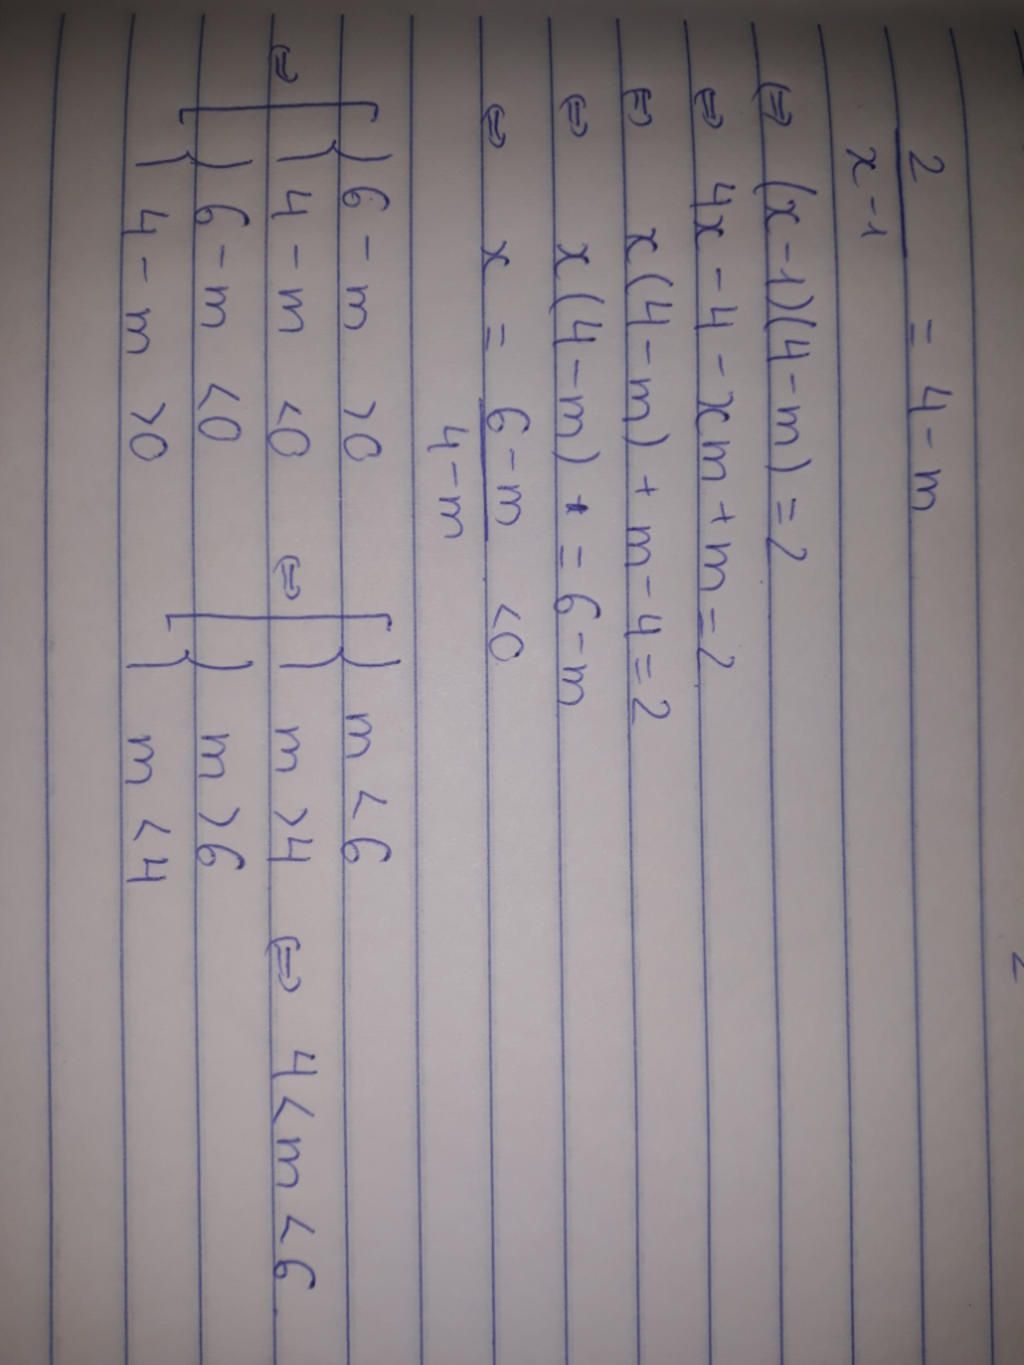 2/(x-1) = 4-m
⇔ (x-1)(4-m) = 2
⇔ 4x - 4 - xm + m = 2
⇔ x(4-m) + m - 4 = 2
⇔ x(4-m) = 6-m
⇔ x = (6-m)/(4-m) <0
⇔ [ { 6-m >0
{ 4-m <0
{ 6-m <0
{ 4-m >0
⇔ [ { m < 6
{ m >4
{ m >6
{ m <4
⇔ 4 < m < 6